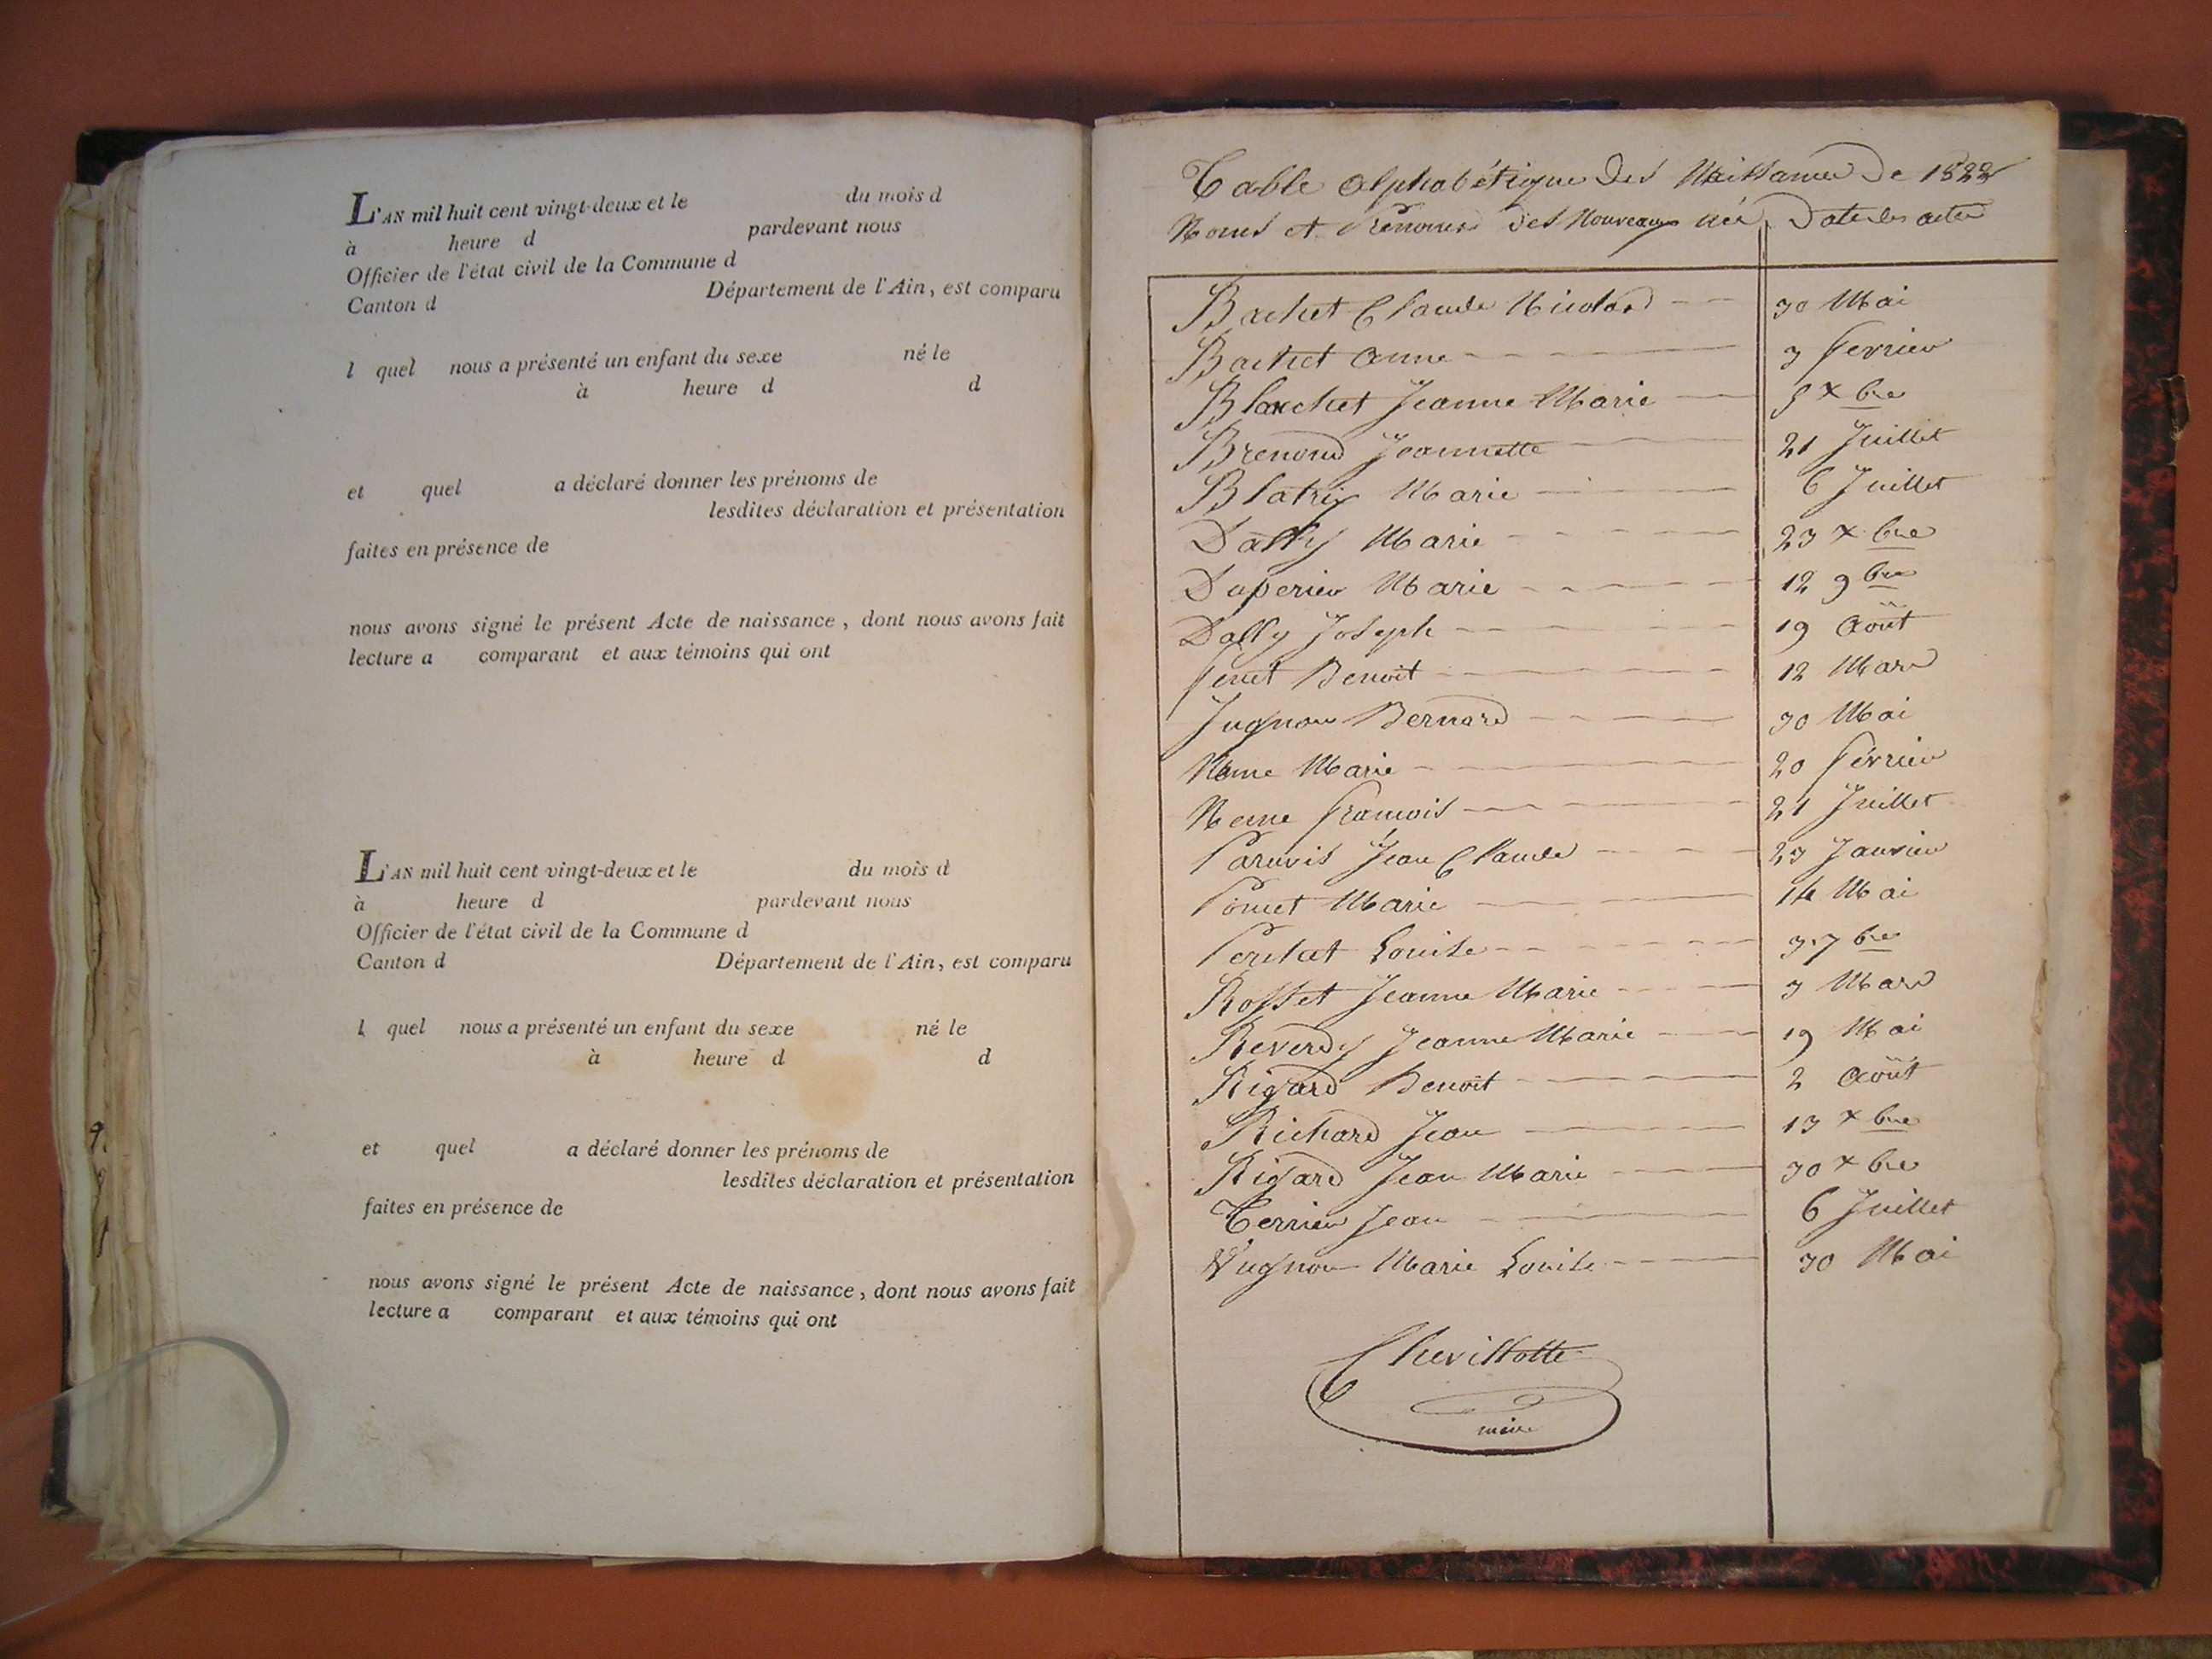 L'AN mil huit cent vingt-deux et le du mois d
à heure d pardevant nous
Officier de l'état civil de la Commune d
Canton d Département de l'Ain, est comparu
l quel nous a présenté un enfant du sexe né le
à heure d d
et quel a déclaré donner les prénoms de
lesdites déclaration et présentation
faites en présence de
nous avons signé le présent Acte de naissance, dont nous avons fait
lecture a comparant et aux témoins qui ont
L'AN mil huit cent vingt-deux et le du mois d
à heure d pardevant nous
Officier de l'état civil de la Commune d
Canton d Département de l'Ain, est comparu
l quel nous a présenté un enfant du sexe né le
à heure d d
et quel a déclaré donner les prénoms de
lesdites déclaration et présentation
faites en présence de
nous avons signé le présent Acte de naissance, dont nous avons fait
lecture a comparant et aux témoins qui ont
Table Alphabétique des Naissances de 1822
Noms et Prénoms des Nouveaux nés Date des actes
Bachet Claude Nicolas 30 Mai
Bachet Anne 3 Fevrier
Blanchet Jeanne Marie 5 xbre
Brenond Jeannette 21 Juillet
Blatrix Marie 6 Juillet
Dally Marie 23 xbre
Duperier Marie 12 9bre
Dally Joseph 19 Août
Benoit 12 Mars
Jugnon Bernard 30 Mai
Neme Marie 20 Février
Neme Francois 21 Juillet
Jean Claude 23 Janvier
Poncet Marie 14 Mai
Perchet Louise 3 7bre
Rosset Jeanne Marie 3 Mars
Reverdy Jeanne Marie 19 Mai
Rigard Benoit 2 Août
Richard Jean 13 xbre
Rigard Jean Marie 30 xbre
Terrier Jean 6 Juillet
Vugnon Marie Louise 30 Mai
Chevillotte
maire